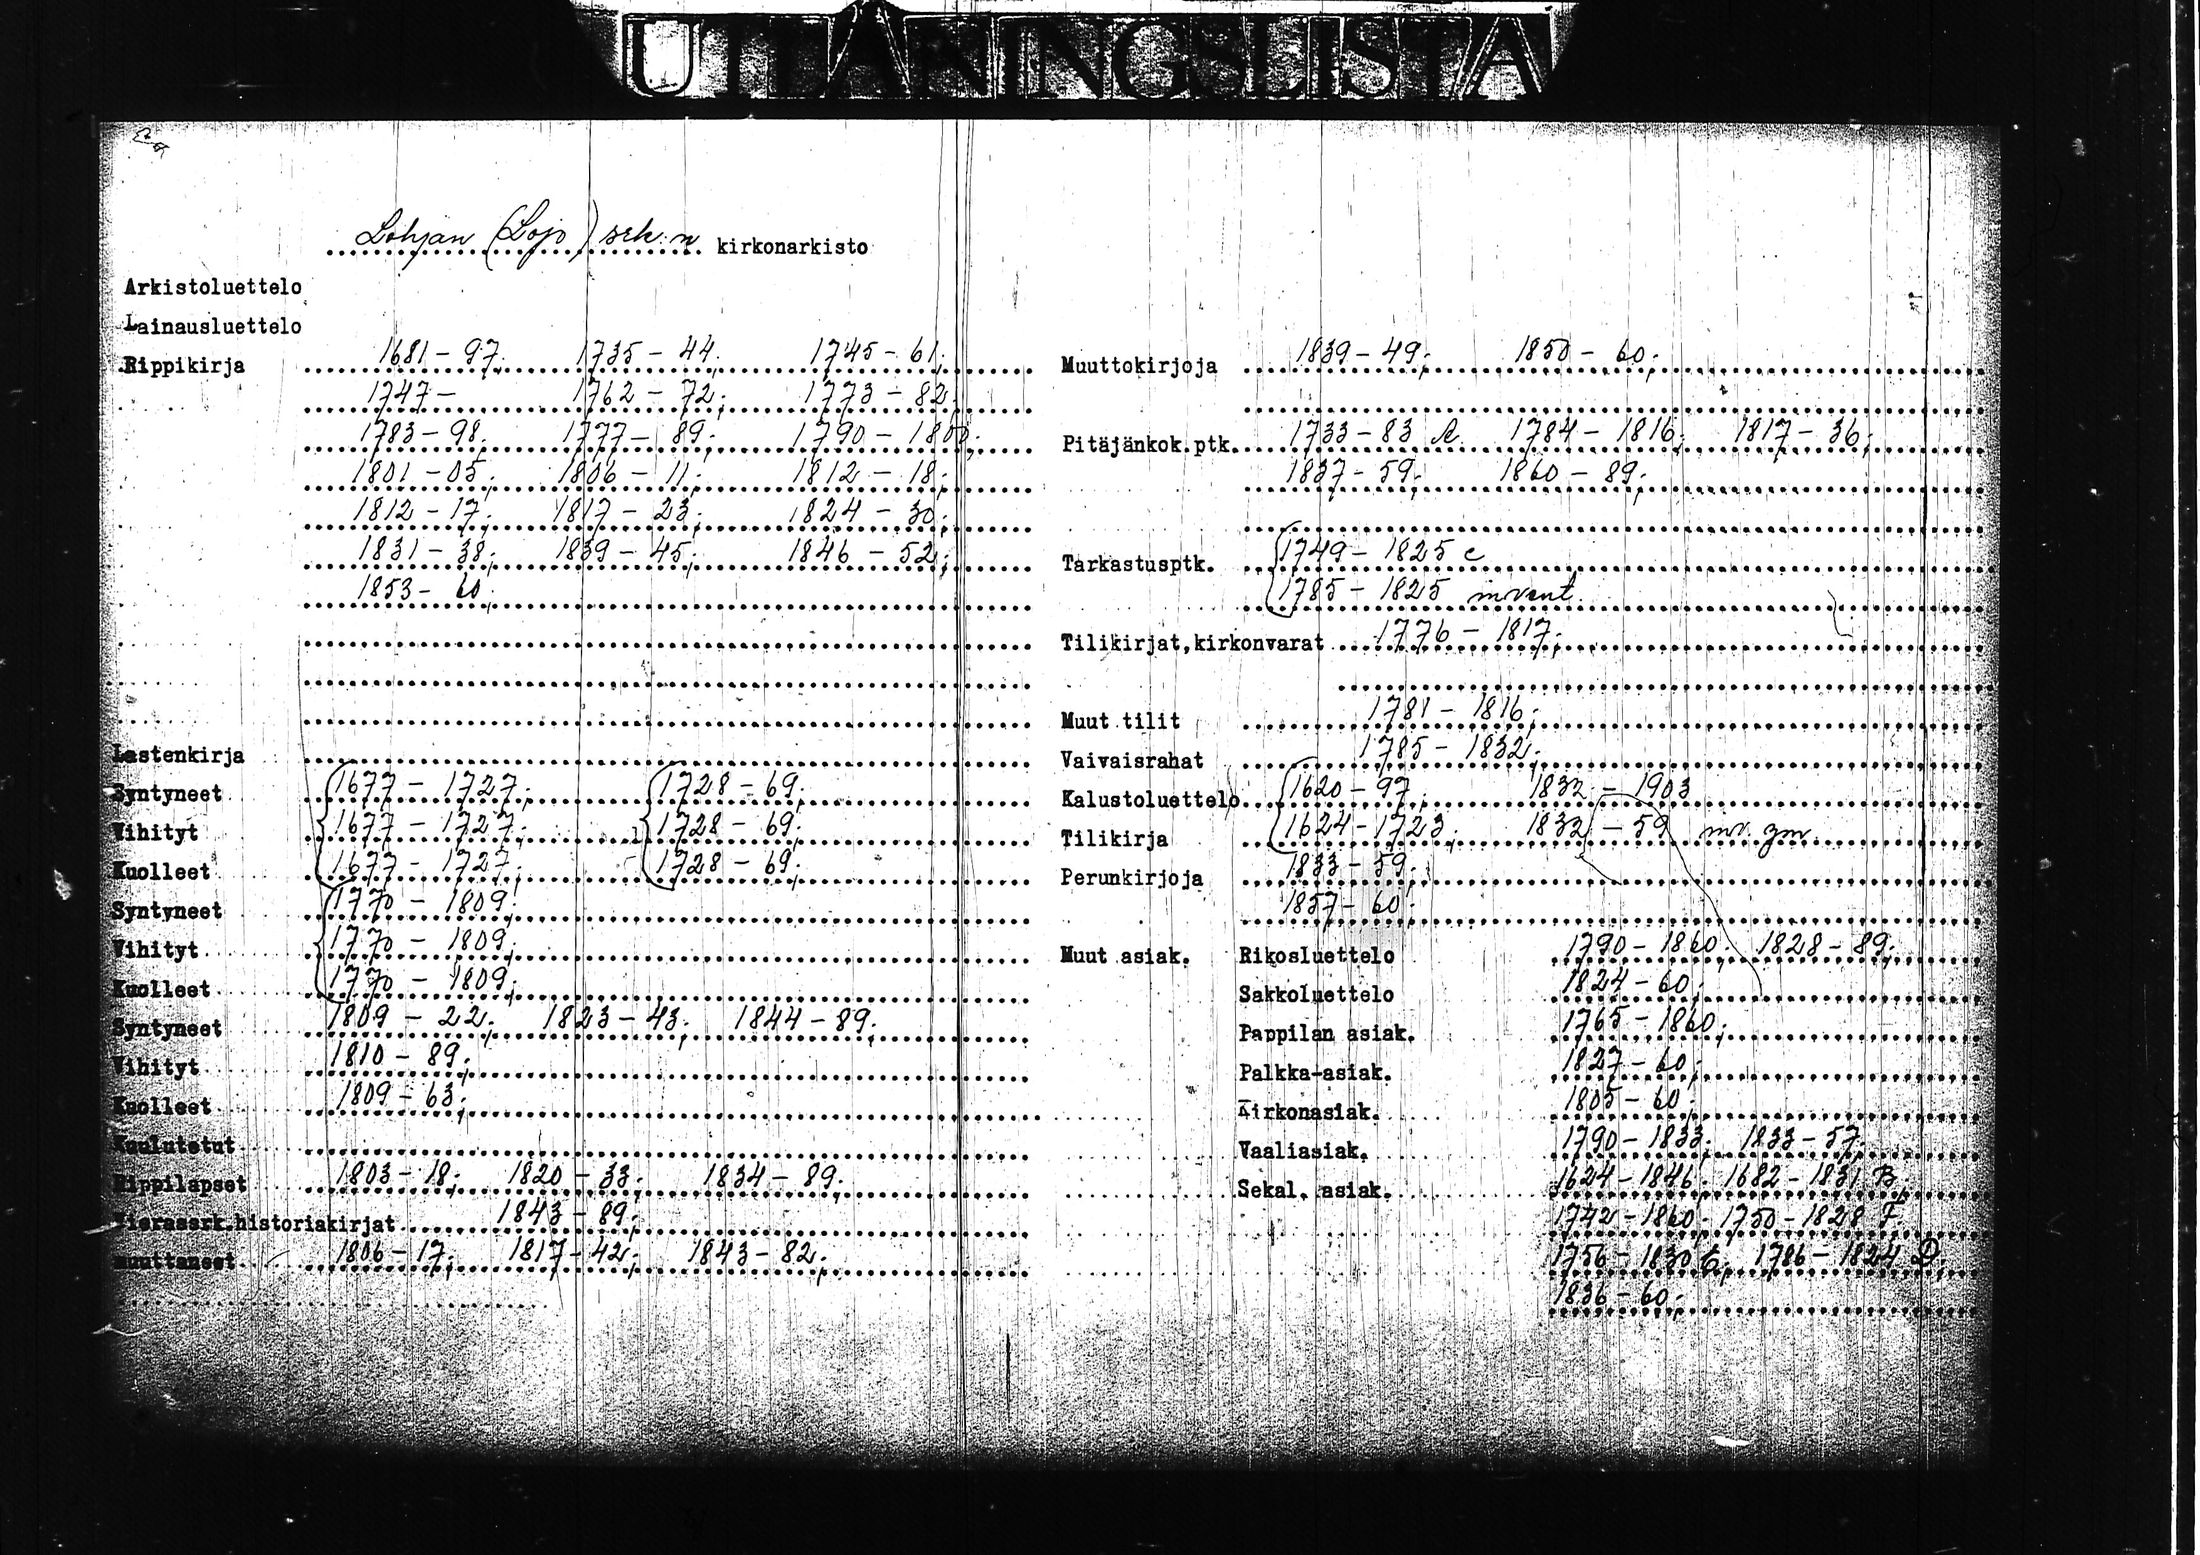 UTLÅNINGSLISTA
Lohjan (Lojo) srk:n kirkonarkisto
Arkistoluettelo
Lainausluettelo
Rippikirja 1681-97; 1735-44; 1745-61;
1747- 1762-72; 1773-82;
1783-98; 1777-89; 1790-1800;
1801-05; 1806-11; 1812-18;
1812-17; 1817-23; 1824-30;
1831-38; 1839-45; 1846-52;
1853-60;
Lastenkirja
Syntyneet 1677-1727; 1728-69;
Vihityt 1677-1727; 1728-69;
Kuolleet 1677-1727; 1728-69;
Syntyneet 1770-1809;
Vihityt 1770-1809;
Kuolleet 1770-1809;
Syntyneet 1809-22; 1823-43; 1844-89;
Vihityt 1810-89;
Kuolleet 1809-63;
Kuulutetut
Rippilapset 1803-18; 1820-33; 1834-89;
Vierassrk.historiakirjat 1843-89;
muuttaneet 1806-17; 1817-42; 1843-82;
Muuttokirjoja 1839-49; 1850-60;
Pitäjänkok.ptk. 1733-83 A 1784-1816; 1817-36;
1837-59; 1860-89;
Tarkastusptk. 1749-1825 c
1785-1825 invent.
Tilikirjat,kirkonvarat 1776-1817;
Muut tilit 1781-1816;
Vaivaisrahat 1785-1832;
Kalustoluettelo 1620-97; 1832-1903
Tilikirja 1624-1723; 1832-59 inv.
Perunkirjoja 1833-59;
1857-60;
Muut asiak. Rikosluettelo 1790-1860; 1828-89;
Sakkoluettelo 1824-60;
Pappilan asiak. 1765-1860;
Palkka-asiak. 1827-60;
Kirkonasiak. 1805-60;
Vaaliasiak. 1790-1833; 1833-57;
Sekal. asiak. 1624-1846; 1682-1831 B;
1742-1860; 1750-1828 F.
1756-1830 E, 1786-1824 D;
1836-60;